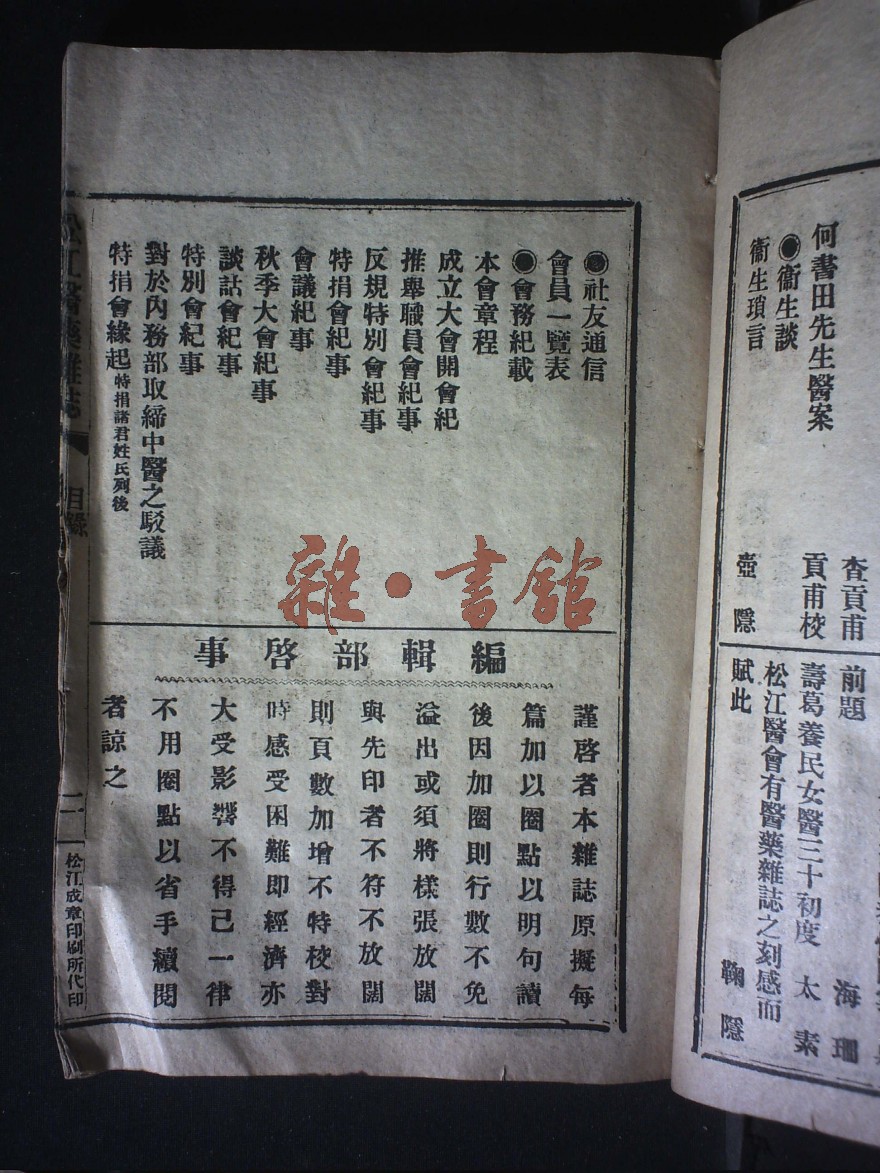 何書田先生醫案
查貢甫
貢甫校
●衞生談
衞生瑣言
壺隱
前題
海珊
壽葛養民女醫三十初度
太素
松江醫會有醫藥雜誌之刻感而
賦此
鞠隱
●社友通信
會員一覽表
●會務紀載
本會章程
成立大會開會紀
推舉職員會紀事
反規特別會紀事
特捐會紀事
會議紀事
秋季大會紀事
談話會紀事
特別會紀事
對於內務部取締中醫之駁議
特捐會緣起特捐諸君姓氏列後
編輯部啓事
謹啓者本雜誌原擬每
篇加以圈點以明句讀
後因加圈則行數不免
溢出或須將樣張放闊
與先印者不符不放闊
則頁數加增不特校對
時感受困難即經濟亦
大受影響不得已一律
不用圈點以省手續閱
者諒之
松江醫藥雜誌
目錄
二
松江成章印刷所代印
雜·書館